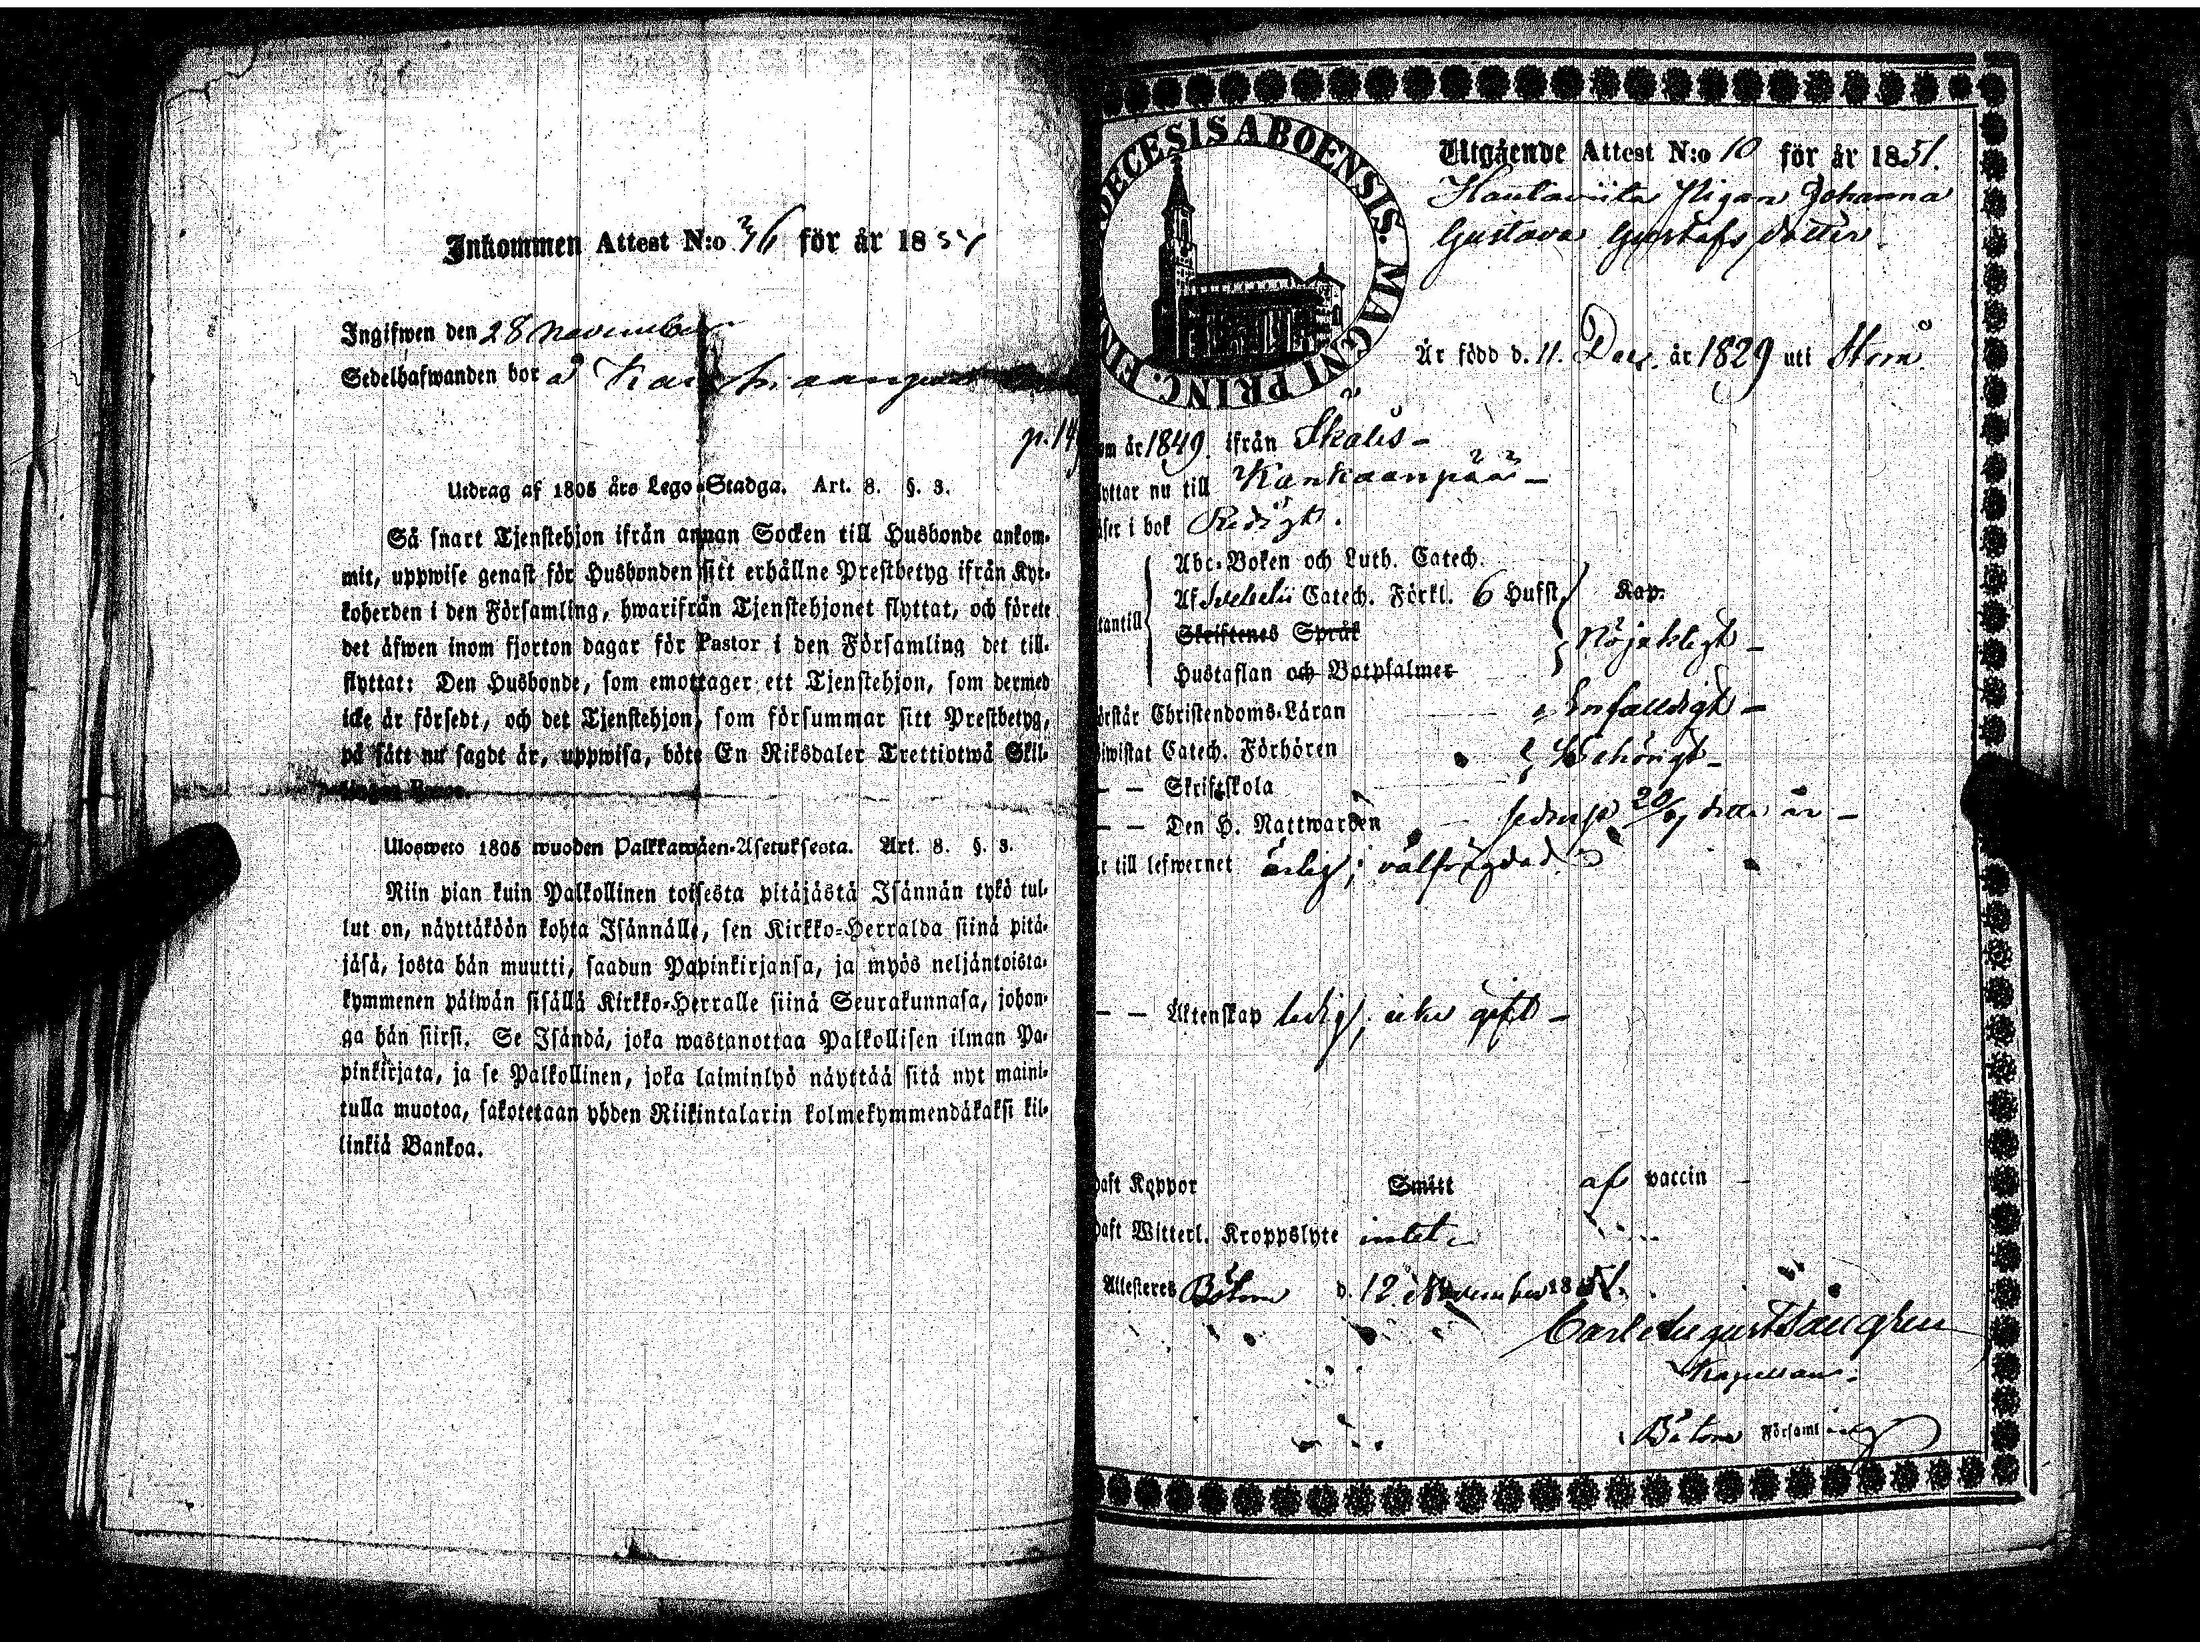 Inkommen Attest N:o 36 för år 1851
Ingifwen den 28 november
Sedelhafwanden bor å
p. 14
Utdrag af 1805 års Lego-Stadga. Art. 8. §. 3.
Så snart Tjenstehjon ifrån annan Socken till Husbonde ankom-
mit, uppwise genast för Husbonden sitt erhållne Prestbetyg ifrån Kyr-
koherden i den Församling, hwarifrån Tjenstehjonet flyttat, och förete
det äfwen inom fjorton dagar för Pastor i den Församling det till-
flyttat: Den Husbonde, som emottager ett Tjenstehjon, som dermed
icke är försedt, och det Tjenstehjon, som försummar sitt Prestbetyg,
på sätt nu sagdt är, uppwisa, böte En Riksdaler Trettiotwå Skil-
lingar Banco.
Ulosweto 1805 wuoden Palkkawäen-Asetuksesta. Art. 8. §. 3.
Niin pian kuin Palkollinen toisesta pitäjästä Isännän tykö tul-
lut on, näyttäköön kohta Isännälle, sen Kirkko-Herralda siinä pitä-
jäsä, josta hän muutti, saadun Papinkirjansa, ja myös neljäntoista-
kymmenen päiwän sisällä Kirkko-Herralle siinä Seurakunnasa, johon-
ga hän siirsi. Se Isändä, joka wastanottaa Palkollisen ilman Pa-
pinkirjata, ja se Palkollinen, joka laiminlyö näyttää sitä nyt maini-
tulla muotoa, sakotetaan yhden Riikintalarin kolmekymmendäkaksi kil-
linkiä Bankoa.
DECESIS ABOENSIS. MAGNI PRINC. FIN
Utgående Attest N:o 10 för år 1851.
Hautaviita Pigan Johanna
Gustava Gustafsdotter.
Är född d. 11. Dec. år 1829 uti Storå
om år 1849. ifrån Skales-
yttar nu till Kankaanpää-
äser i bok Redigt.
Abc-Boken och Luth. Catech.
Af Svebelii Catech. Förkl. 6 Hufst. Kap.
tantill Skriftenes Språk Nöjaktigt-
Hustaflan och Botpsalmer
örstår Christendoms-Läran Enfalldigt-
iwistat Catech. Förhören Behörigt-
— — Skriftskola
— — Den H. Nattwarden sednast 20/7 detta år-
r till lefwernet ärlig; välfrägdad.
— — Äktenskap ledig; icke gift-
haft Koppor Smitt af vaccin
haft Witterl. Kroppslyte intet
Attesteres Bötom d. 12 November 1851.
Carl August
Kapellan.
Bötom Församling